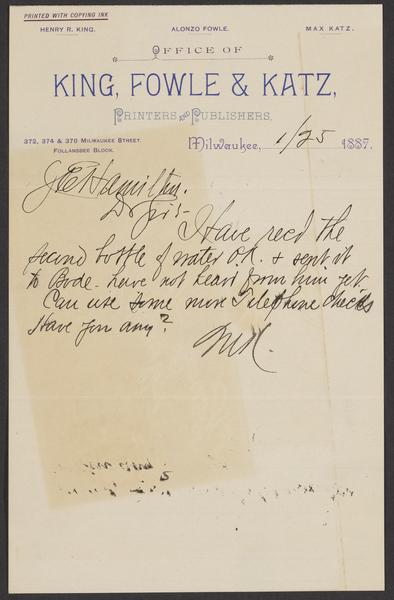 PRINTED WITH COPYING INK
HENRY R. KING. ALONZO FOWLE. MAX KATZ.
OFFICE OF
KING, FOWLE & KATZ,
PRINTERS AND PUBLISHERS,
372, 374 & 376 MILWAUKEE STREET.
FOLLANSBEE BLOCK.
Milwaukee, 1/25 1887.
J E Hamilton.
Dr Sir-
Have rec'd the
second bottle of water O.K. & sent it
to Bode - have not heard from him yet.
Can use some more Telephone checks
Have you any?
MK.